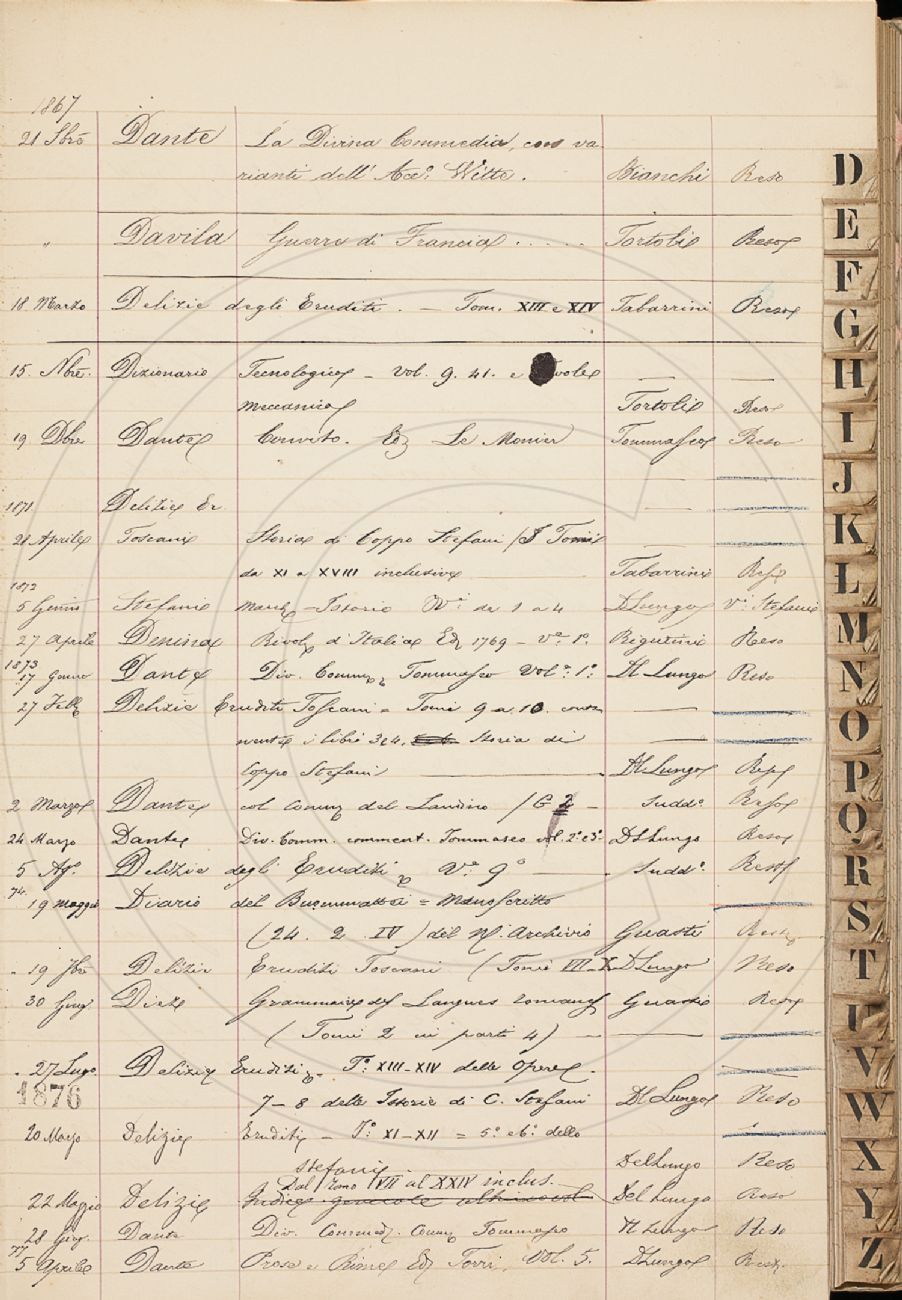 1867
21 Dante La Divina Commedia, con va
rianti dell' Witte. Bianchi Reso
" Davila Guerre di Francia ..... Tortoli Reso
18. Marzo Delizie degli Eruditi. — Tom. XIII e XIV Tabarrini Reso
15. Nbre. Dizionario Tecnologico — Vol. 9. 41. e
meccanica Tortoli Reso
19 Dbre Dante Convito. Ed Le Monier Tommaseo Reso
1871 Delizie Er.
21 Aprile Toscani Storia di Coppo Stefani
da XI a XVIII inclusive Tabarrini Reso
1872
5 Stefani Istorie de 1 a 4 DLungo Va. Stefani
27 Aprile Denina Rivol d'Italia Ed 1769 — Vo. 1o. Rigutini Reso
1873
17 Dante Div. Comm Tommaseo Vol.o 1o. Del Lungo Reso
27 Delizie Eruditi Toscani = Tomi 9 a. 10. conte
nente i libri 3 e 4. Storia di
Coppo Stefani DelLungo
2 Marzo Dante col Comm del Landino Sudd.o
24 Marzo Dante Div. Comm. comment. Tommaseo vol. 2o. e 3o. DLungo Reso
5 Delizie degli Eruditi Vo. 9o Sudd.o Reso
74.
19 maggio Diario del = Manoscritto
(24. 2 IV) del N. Archivio Guasti
" 19 Delizie Eruditi Toscani (Tomi III-X DLungo Reso
30 Diez Grammaire des Langues romanes Guasti Reso
(Tomi 2 in parti 4)
" 27 Delizie Eruditi — To. XIII-XIV delle Opere
1876 7-8 delle Istorie di C. Stefani Del Lungo Reso
20 Marzo Delizie Eruditi — To. XI-XII = 5o. e 6o. dello
Stefani DelLungo Reso
Dal Tomo VII al XXIV inclus.
22 Maggio Delizie Indice generale Del Lungo Reso
28 Giug. Dante Div. Commed. Comm Tommaseo DLungo Reso
77
5 Aprile Dante Prose e Rime Ed Torri. Vol. 5. DLungo
D
E
F
G
H
I
J
K
L
M
N
O
P
Q
R
S
T
U
V
W
X
Y
Z